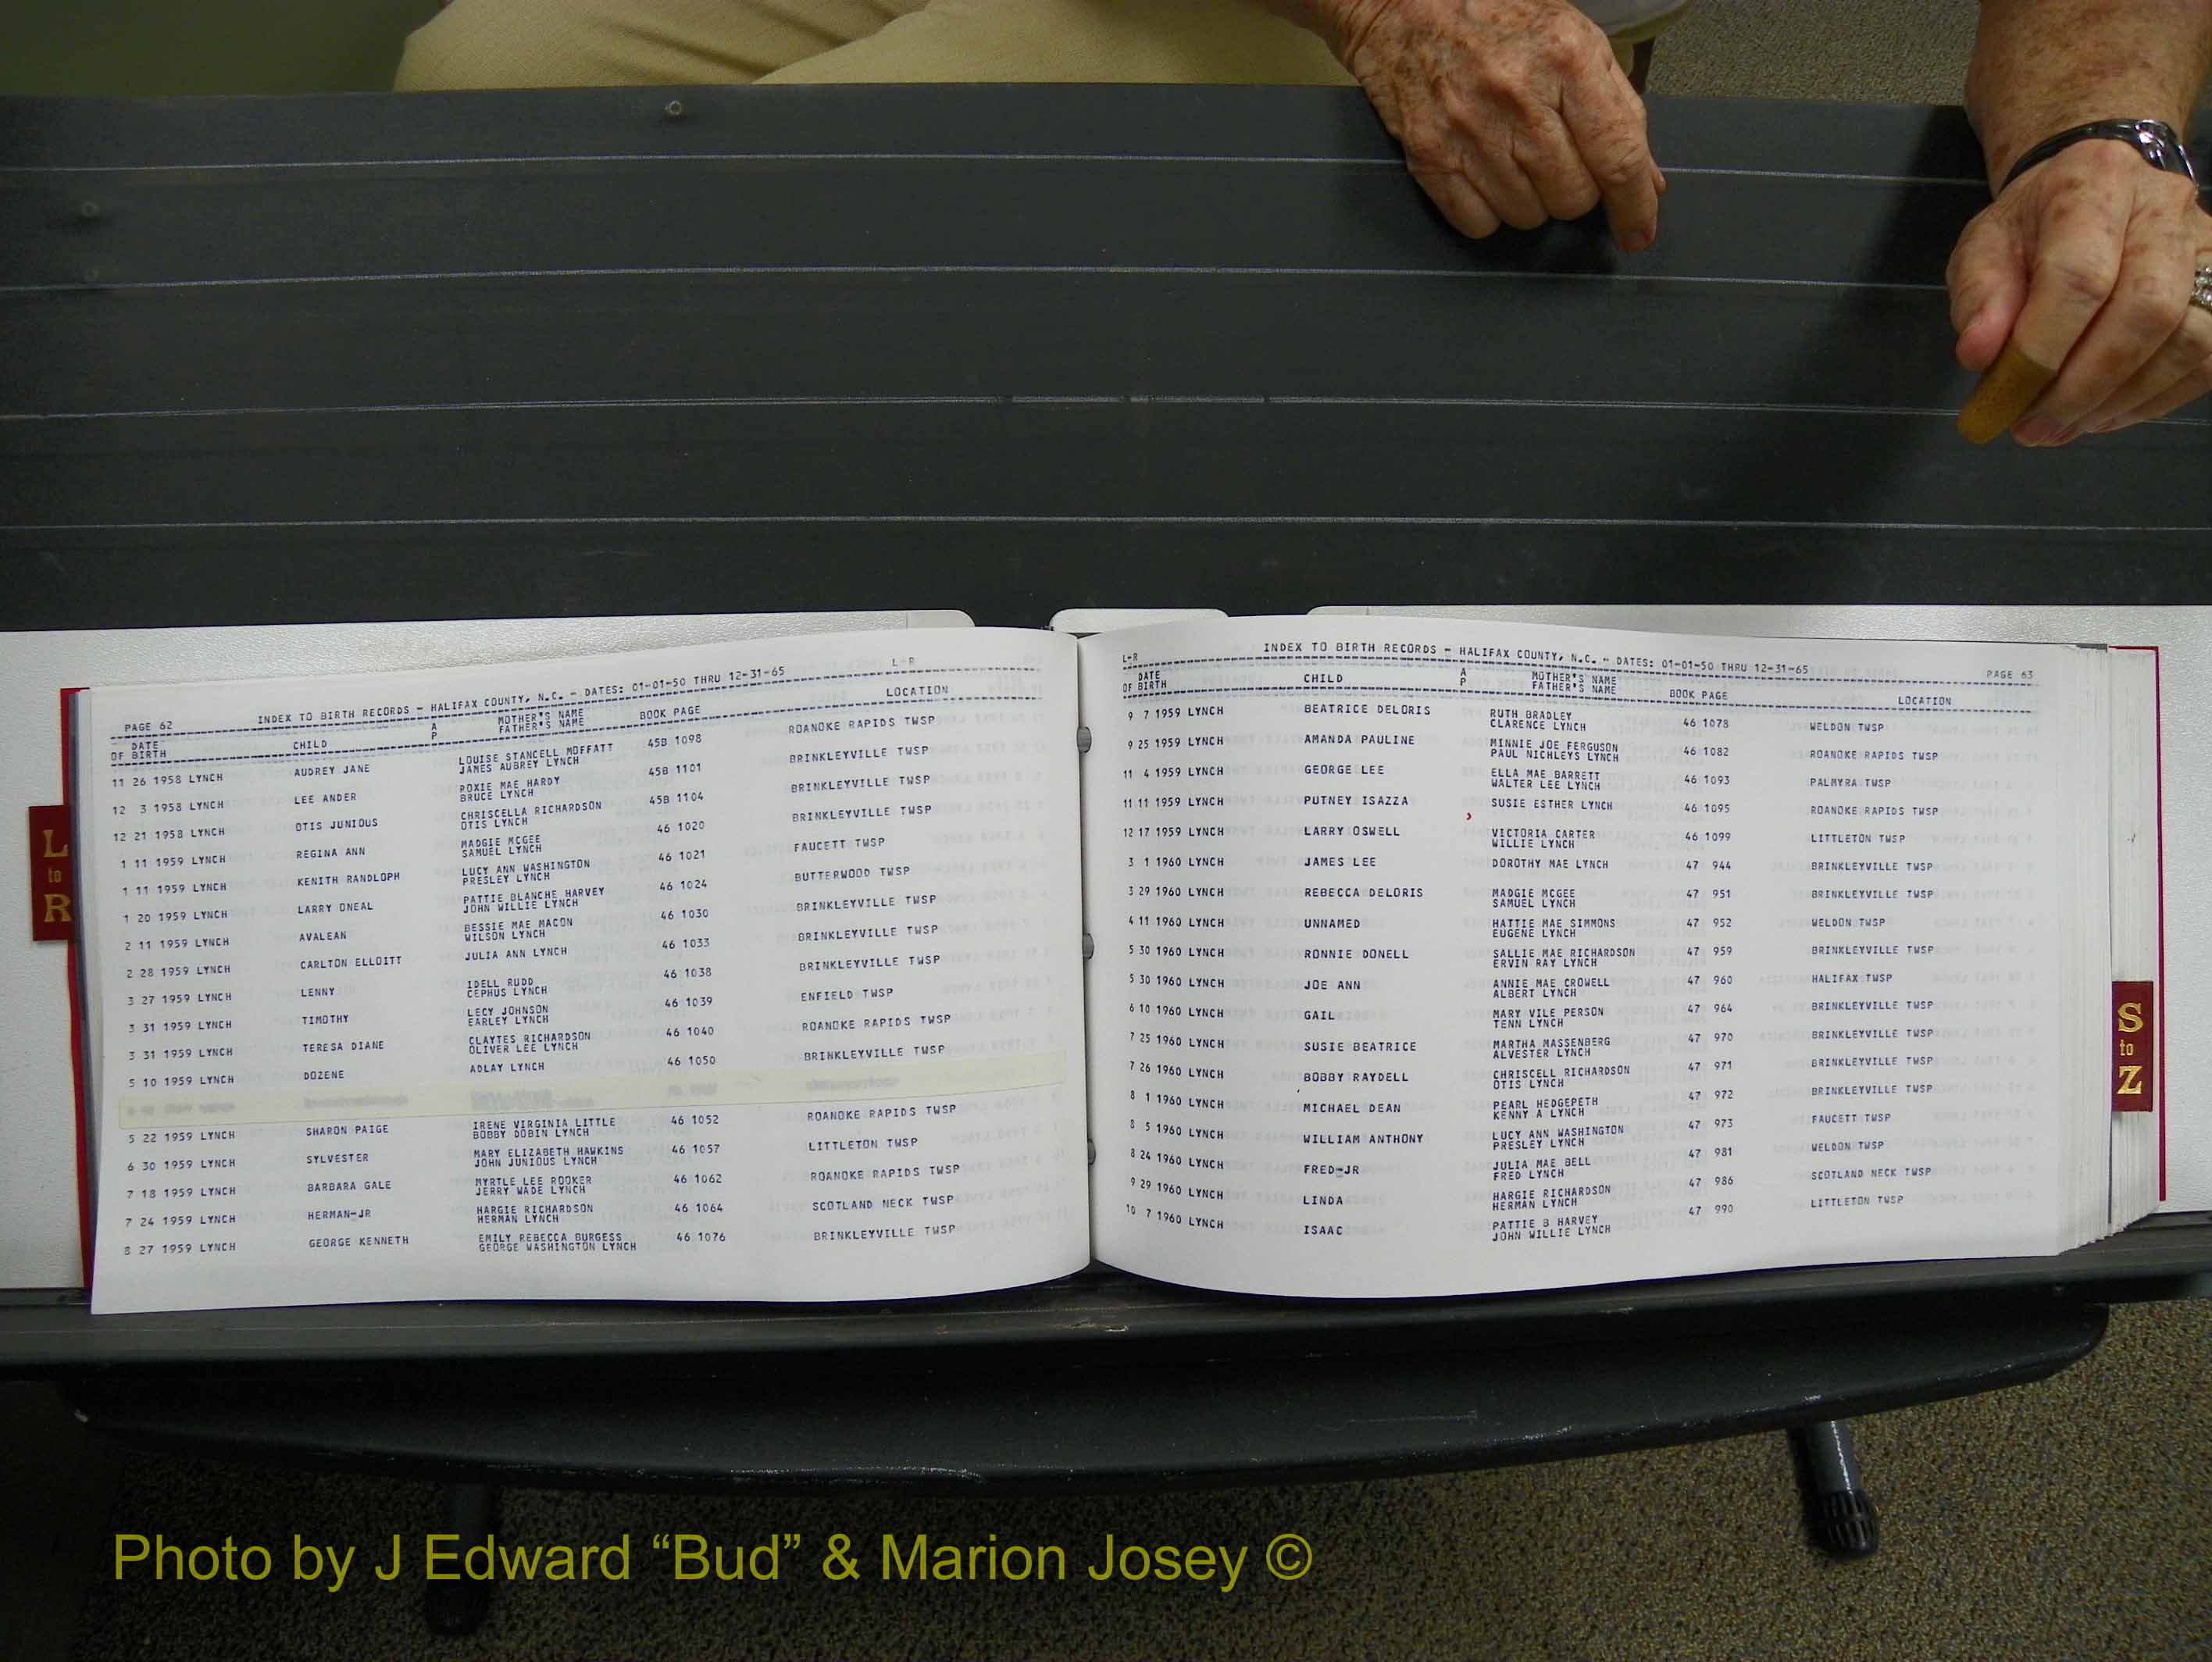 PAGE 62 INDEX TO BIRTH RECORDS - HALIFAX COUNTY, N.C. - DATES: 01-01-50 THRU 12-31-65 L-R
DATE OF BIRTH CHILD A P MOTHER'S NAME FATHER'S NAME BOOK PAGE LOCATION
11 26 1958 LYNCH AUDREY JANE LOUISE STANCELL MOFFATT 45B 1098 ROANOKE RAPIDS TWSP
JAMES AUBREY LYNCH
12 3 1958 LYNCH LEE ANDER ROXIE MAE HARDY 45B 1101 BRINKLEYVILLE TWSP
BRUCE LYNCH
12 21 1958 LYNCH OTIS JUNIOUS CHRISCELLA RICHARDSON 45B 1104 BRINKLEYVILLE TWSP
OTIS LYNCH
1 11 1959 LYNCH REGINA ANN MADGIE MCGEE 46 1020 BRINKLEYVILLE TWSP
SAMUEL LYNCH
1 11 1959 LYNCH KENITH RANDLOPH LUCY ANN WASHINGTON 46 1021 FAUCETT TWSP
PRESLEY LYNCH
1 20 1959 LYNCH LARRY ONEAL PATTIE BLANCHE HARVEY 46 1024 BUTTERWOOD TWSP
JOHN WILLIE LYNCH
2 11 1959 LYNCH AVALEAN BESSIE MAE MACON 46 1030 BRINKLEYVILLE TWSP
WILSON LYNCH
2 28 1959 LYNCH CARLTON ELLOITT JULIA ANN LYNCH 46 1033 BRINKLEYVILLE TWSP
3 27 1959 LYNCH LENNY IDELL RUDD 46 1038 BRINKLEYVILLE TWSP
CEPHUS LYNCH
3 31 1959 LYNCH TIMOTHY LECY JOHNSON 46 1039 ENFIELD TWSP
EARLEY LYNCH
3 31 1959 LYNCH TERESA DIANE CLAYTES RICHARDSON 46 1040 ROANOKE RAPIDS TWSP
OLIVER LEE LYNCH
5 10 1959 LYNCH DOZENE ADLAY LYNCH 46 1050 BRINKLEYVILLE TWSP
5 22 1959 LYNCH SHARON PAIGE IRENE VIRGINIA LITTLE 46 1052 ROANOKE RAPIDS TWSP
BOBBY DOBIN LYNCH
6 30 1959 LYNCH SYLVESTER MARY ELIZABETH HAWKINS 46 1057 LITTLETON TWSP
JOHN JUNIOUS LYNCH
7 18 1959 LYNCH BARBARA GALE MYRTLE LEE ROOKER 46 1062 ROANOKE RAPIDS TWSP
JERRY WADE LYNCH
7 24 1959 LYNCH HERMAN-JR HARGIE RICHARDSON 46 1064 SCOTLAND NECK TWSP
HERMAN LYNCH
8 27 1959 LYNCH GEORGE KENNETH EMILY REBECCA BURGESS 46 1076 BRINKLEYVILLE TWSP
GEORGE WASHINGTON LYNCH
L to R
L-R INDEX TO BIRTH RECORDS - HALIFAX COUNTY, N.C. - DATES: 01-01-50 THRU 12-31-65 PAGE 63
DATE OF BIRTH CHILD A P MOTHER'S NAME FATHER'S NAME BOOK PAGE LOCATION
9 7 1959 LYNCH BEATRICE DELORIS RUTH BRADLEY 46 1078 WELDON TWSP
CLARENCE LYNCH
9 25 1959 LYNCH AMANDA PAULINE MINNIE JOE FERGUSON 46 1082 ROANOKE RAPIDS TWSP
PAUL NICHLEYS LYNCH
11 4 1959 LYNCH GEORGE LEE ELLA MAE BARRETT 46 1093 PALMYRA TWSP
WALTER LEE LYNCH
11 11 1959 LYNCH PUTNEY ISAZZA SUSIE ESTHER LYNCH 46 1095 ROANOKE RAPIDS TWSP
12 17 1959 LYNCH LARRY OSWELL VICTORIA CARTER 46 1099 LITTLETON TWSP
WILLIE LYNCH
3 1 1960 LYNCH JAMES LEE DOROTHY MAE LYNCH 47 944 BRINKLEYVILLE TWSP
3 29 1960 LYNCH REBECCA DELORIS MADGIE MCGEE 47 951 BRINKLEYVILLE TWSP
SAMUEL LYNCH
4 11 1960 LYNCH UNNAMED HATTIE MAE SIMMONS 47 952 WELDON TWSP
EUGENE LYNCH
5 30 1960 LYNCH RONNIE DONELL SALLIE MAE RICHARDSON 47 959 BRINKLEYVILLE TWSP
ERVIN RAY LYNCH
5 30 1960 LYNCH JOE ANN ANNIE MAE CROWELL 47 960 HALIFAX TWSP
ALBERT LYNCH
6 10 1960 LYNCH GAIL MARY VILE PERSON 47 964 BRINKLEYVILLE TWSP
TENN LYNCH
7 25 1960 LYNCH SUSIE BEATRICE MARTHA MASSENBERG 47 970 BRINKLEYVILLE TWSP
ALVESTER LYNCH
7 26 1960 LYNCH BOBBY RAYDELL CHRISCELL RICHARDSON 47 971 BRINKLEYVILLE TWSP
OTIS LYNCH
8 1 1960 LYNCH MICHAEL DEAN PEARL HEDGEPETH 47 972 BRINKLEYVILLE TWSP
KENNY A LYNCH
8 5 1960 LYNCH WILLIAM ANTHONY LUCY ANN WASHINGTON 47 973 FAUCETT TWSP
PRESLEY LYNCH
8 24 1960 LYNCH FRED-JR JULIA MAE BELL 47 981 WELDON TWSP
FRED LYNCH
9 29 1960 LYNCH LINDA HARGIE RICHARDSON 47 986 SCOTLAND NECK TWSP
HERMAN LYNCH
10 7 1960 LYNCH ISAAC PATTIE B HARVEY 47 990 LITTLETON TWSP
JOHN WILLIE LYNCH
S to Z
Photo by J Edward “Bud” & Marion Josey ©